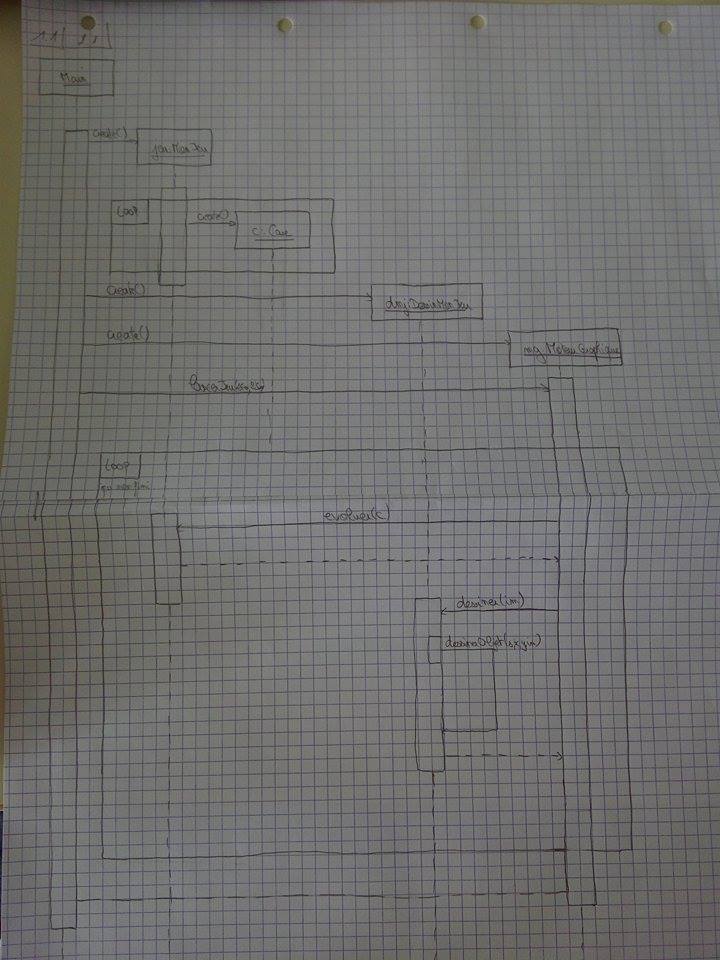 Main
create()
jeu:MonJeu
Loop
create()
c:Case
create()
dmj:DessinMonJeu
create()
mg:MoteurGraphique
Loop
evoluer(c)
dessiner(im)
dessinerObjet(s,x,y,im)